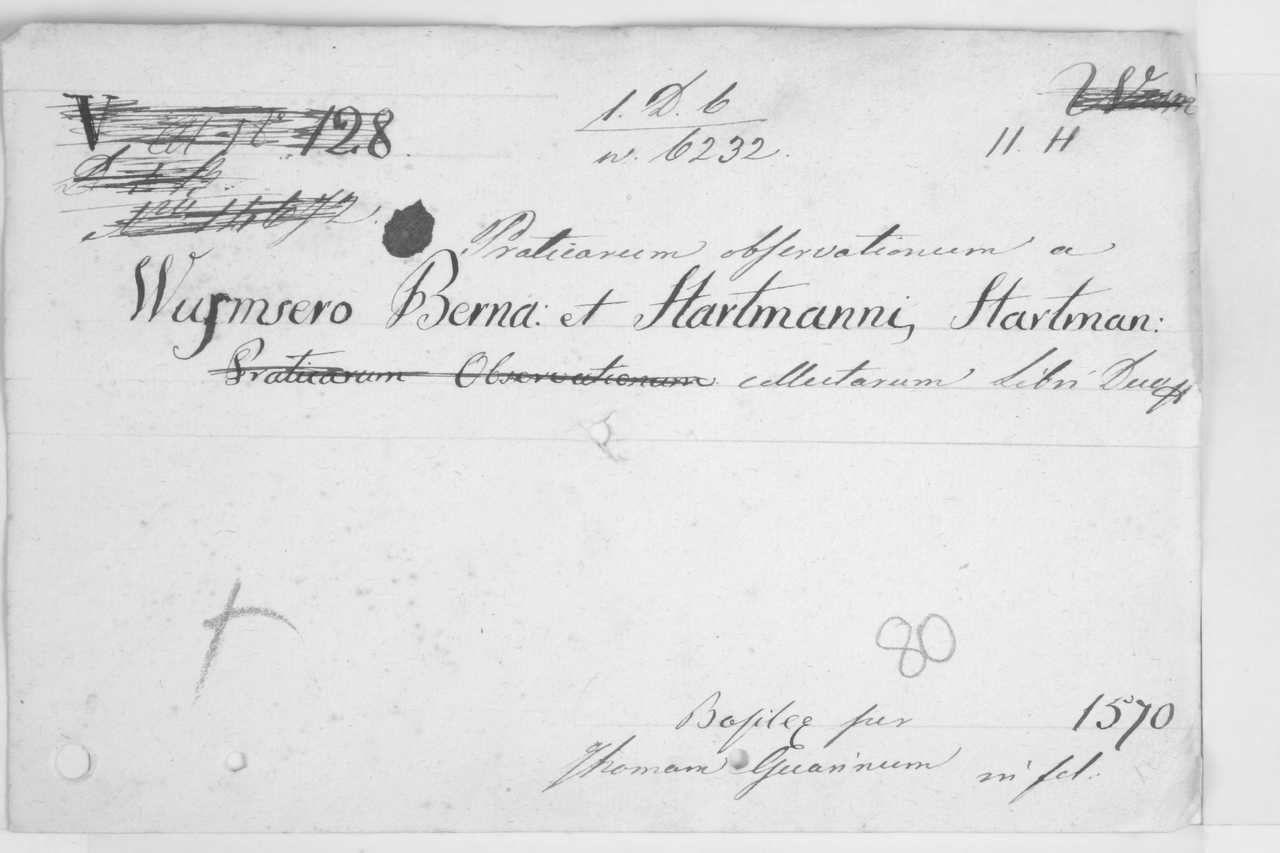 V 128
1. D. 6
n. 6232.
11. H
Praticarum observationum a
Wurmsero Berna: et Hartmanni, Hartman:
Praticarum Observationum collectarum Libri Duo
80
Basileę per 1570
Thomam Guarinum in fol.